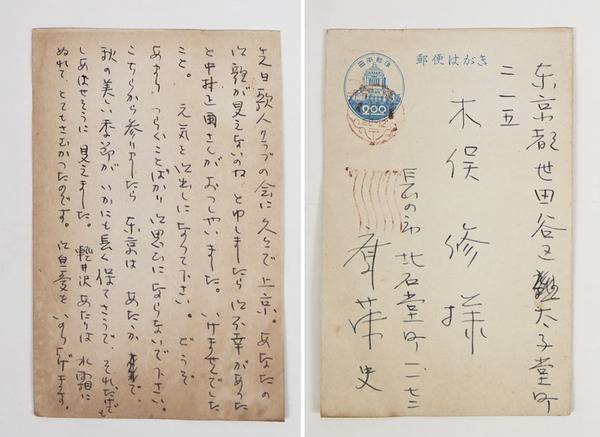 先日歌人クラブの会に久々で上京。あなたの
御顔が見えないのね と申しましたら 御不幸があつた
と中村正爾さんがおつしやいました。いけませんでした
こと。 元気を御出しになつて下さい。どうぞ
あまり つらいことばかり 御思ひにならないで下さい。
こちらから参りましたら 東京は あたたかで、
秋の美しい季節が いかにも長く保てさうで、それだけでも
しあはせそうに見えました。 軽井沢あたりは 水霜に
ぬれて、とてもさむかつたのです。 御自愛を いのりあげます。
郵便はがき
日本郵便
200
東京都世田谷区太子堂町
三一五
木俣修様
長の市北石堂町一一七二
史